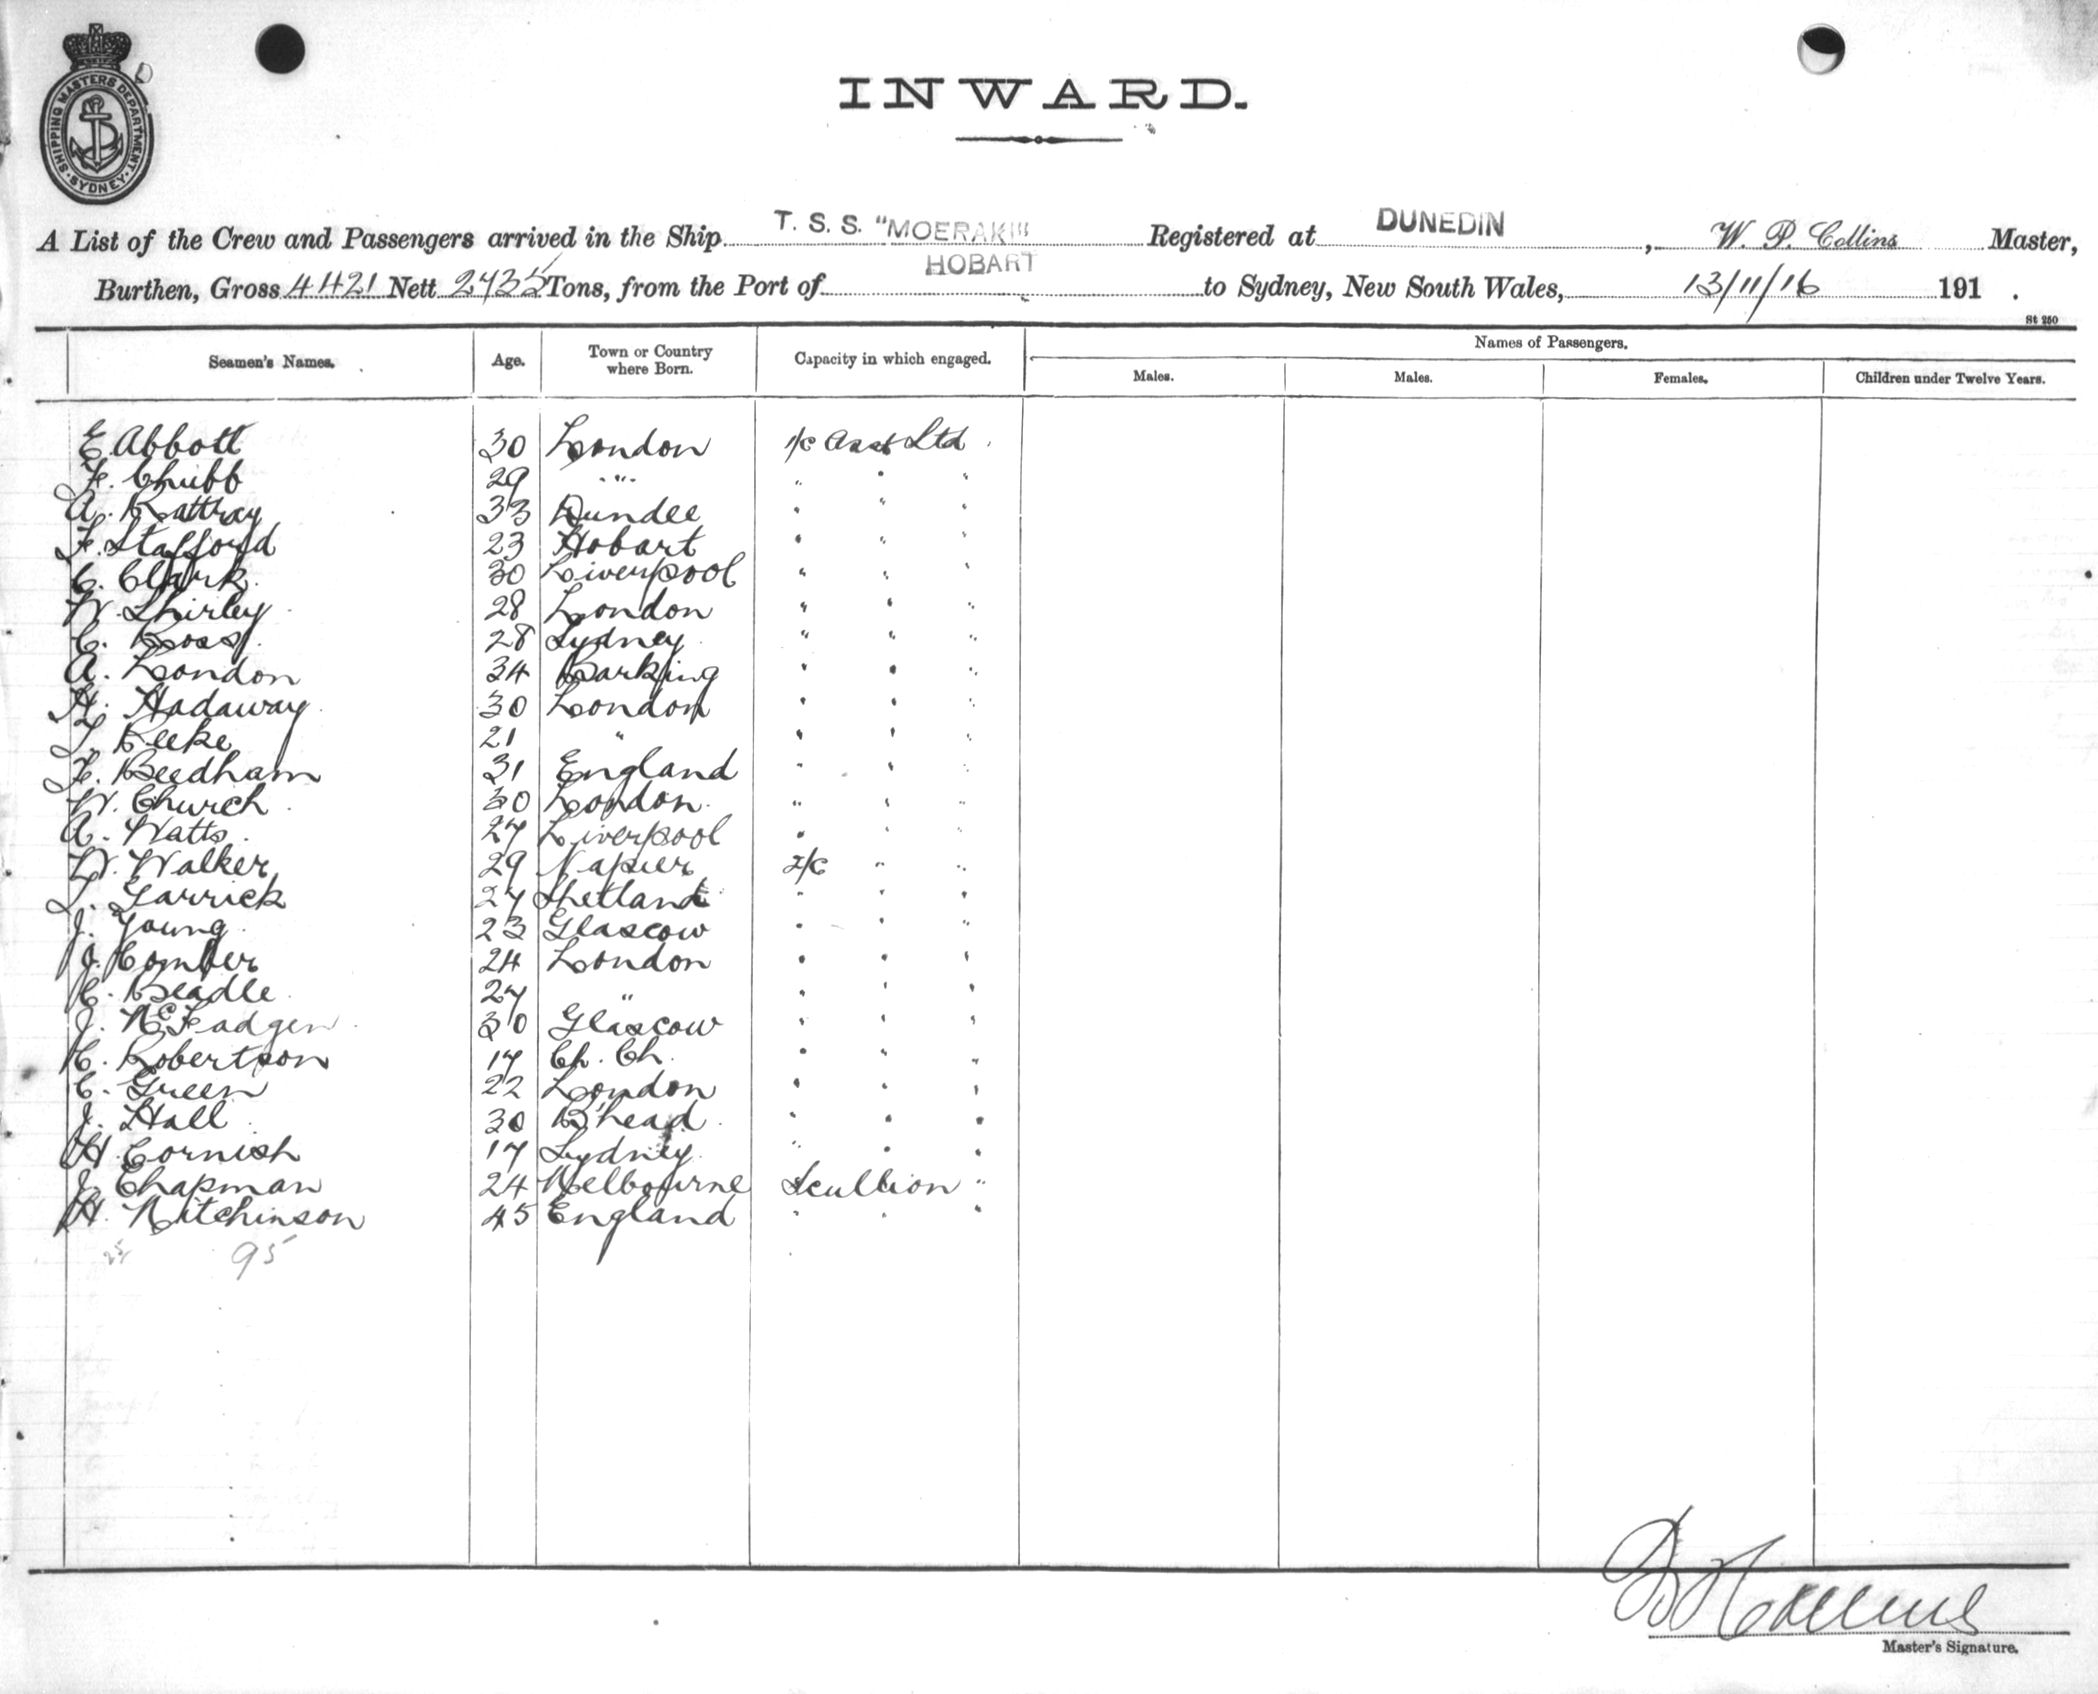 SHIPPING MASTERS DEPARTMENT. SYDNEY.
INWARD.
A List of the Crew and Passengers arrived in the Ship T. S. S. "MOERAKI" Registered at DUNEDIN, W. P. Collins Master,
Burthen, Gross 4421 Nett 2435 Tons, from the Port of HOBART to Sydney, New South Wales, 13/11/16 191 .
St 250
Seamen's Names. Age. Town or Country where Born. Capacity in which engaged. Names of Passengers.
Males. Males. Females. Children under Twelve Years.
E Abbott 30 London 1/c Asst Std
F. Chubb 29 " " " " "
A. Rattray 33 Dundee " " "
F. Stafford 23 Hobart " " "
C. Clark 30 Liverpool " " "
W. Shirley 28 London " " "
C. Ross 28 Sydney " " "
A. London 34 Barking " " "
H. Hadaway 30 London " " "
T. Keeke 21 " " " "
F. Beedham 31 England " " "
W. Church 30 London " " "
A. Watts 27 Liverpool " " "
W. Walker 29 Napier 2/c " "
T. Garrick 27 Shetland " " "
J. Young 23 Glascow " " "
J. Comber 24 London " " "
C. Beadle 27 " " " "
J. McFadgen 30 Glascow " " "
C. Robertson 17 Ch. Ch. " " "
C. Green 22 London " " "
J. Hall 30 B'head " " "
H Cornish 17 Sydney " " "
J. Chapman 24 Melbourne Scullion "
H. Mitchinson 45 England " " "
25 95
Master's Signature.